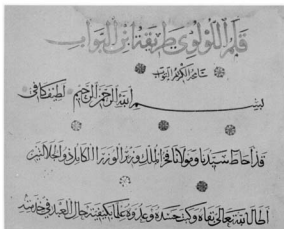 قلم اللولوي طريقة ابن البواب
بسم الله الرحمن الرحيم
قد احاط سيدنا ومولانا فخر الملك وزير الوزرا الكامل ذو الجلالتين
اطال الله تعالى بقاه وكبت حسدته وعدوه علما بكيفية حال العبد في خدمته